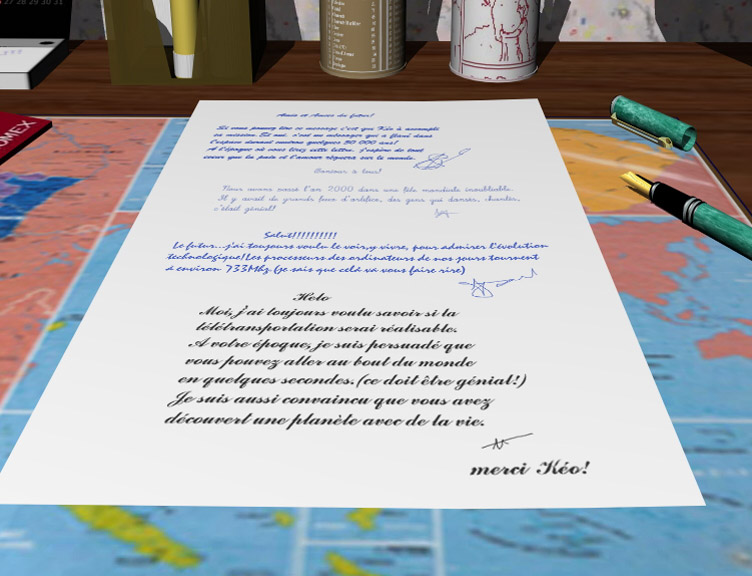 27 28 29 30 31
OMEX
Amis et Amies du futur!
Si vous pouvez lire ce message c'est que Kéo a accompli
sa mission. Et oui, c'est un messager que a flâné dans
l'espace durant environ quelques 50 000 ans!
A l'époque où vous lirez cette lettre, j'espère de tout
coeur que la paix et l'amour règnera sur le monde.
Bonjour à tous!
Nous avons passé l'an 2000 dans une fête mondiale inoubliable.
Il y avait de grands feux d'artifice, des gens qui dansent, chantent,
c'était génial!
Salut!!!!!!!!!!
Le futur...j'ai toujours voulu le voir,y vivre, pour admirer l'évolution
technologique!Les processeurs des ordinateurs de nos jours tournent
à environ 733Mhz (je sais que celà va vous faire rire)
Helo
Moi, j'ai toujours voulu savoir si la
télétransportation serai réalisable.
A votre époque, je suis persuadé que
vous pouvez aller au bout du monde
en quelques secondes.(ce doit être génial!)
Je suis aussi convaincu que vous avez
découvert une planète avec de la vie.
merci Kéo!